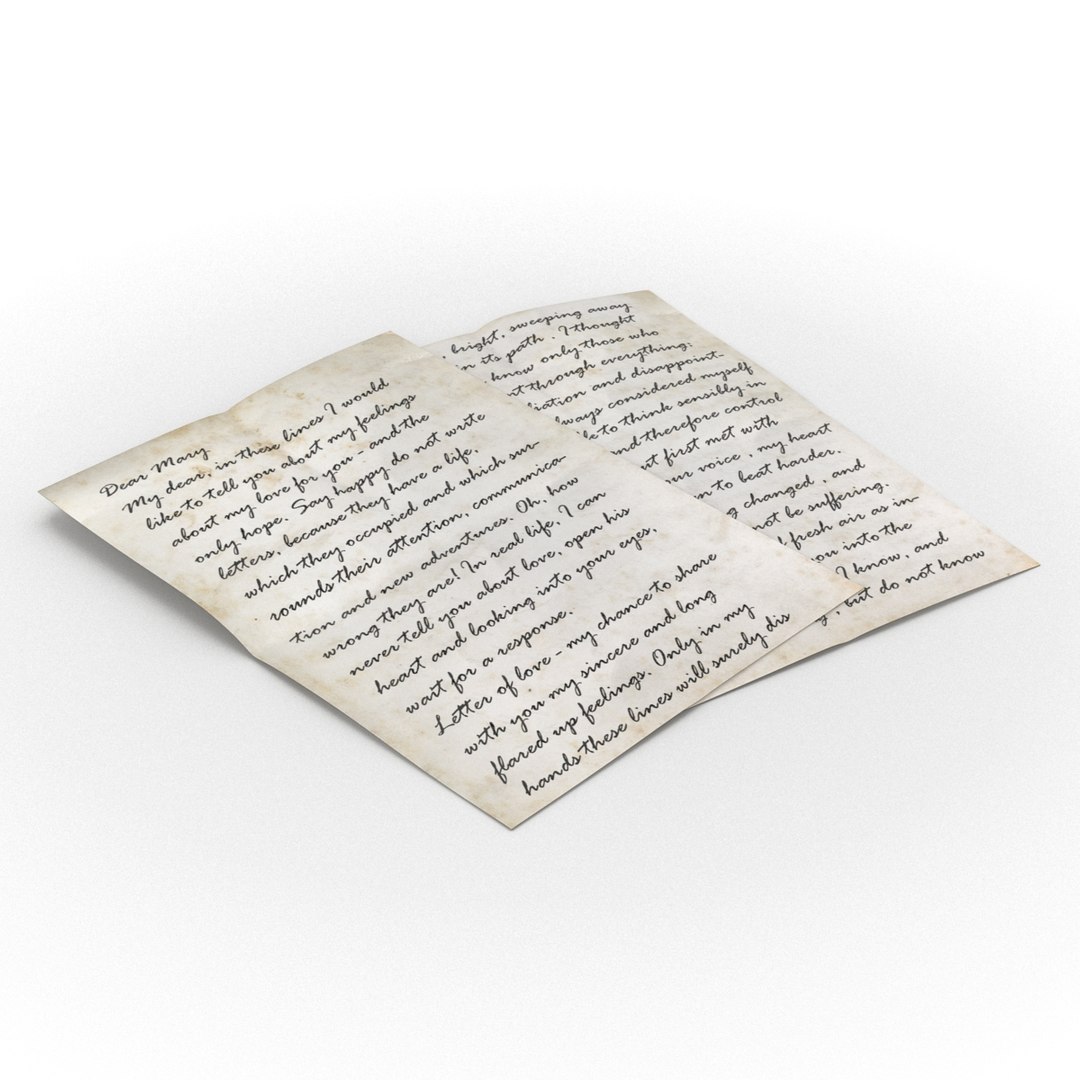 Dear Mary
My dear, in these lines I would
like to tell you about my feelings
about my love for you - and the
only hope. Say happy do not write
letters, because they have a life,
which they occupied and which sur-
rounds their attention, communica-
tion and new adventures. Oh, how
wrong they are! In real life, I can
never tell you about love, open his
heart and looking into your eyes,
wait for a response.
Letter of love - my chance to share
with you my sincere and long
flared up feelings. Only in my
hands these lines will surely dis
bright, sweeping away
n its path. I thought
know only those who
through everything;
and disappoint-
lways considered myself
to think sensilly in
nd therefore control
first met with
ur voice, my heart
to beat harder,
changed, and
not be suffering,
fresh air as in-
into the
I know, and
, but do not know